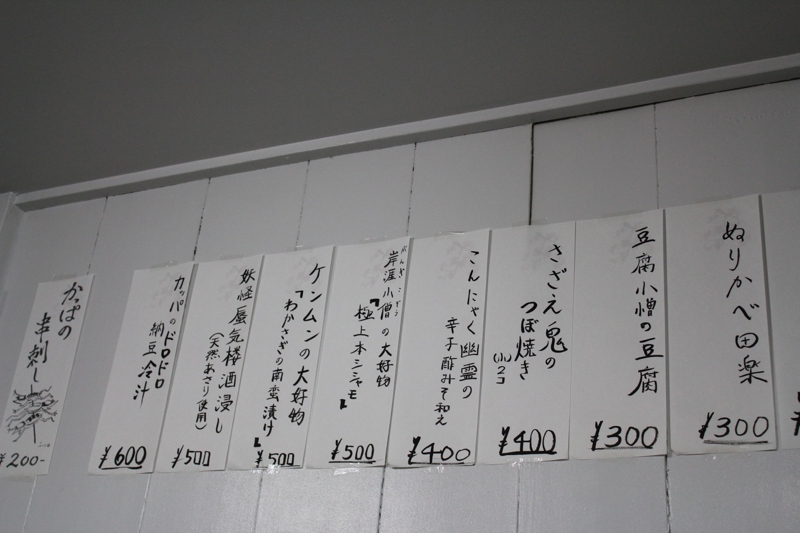 ぬりかべ田楽
¥300
豆腐小僧の豆腐
¥300
さざえ鬼の
つぼ焼き
(小)2コ
¥400
こんにゃく幽霊の
辛子酢みそ和え
¥400
がんぎこぞう
岸涯小僧の大好物
『極上本シシャモ』
¥500
ケンムンの大好物
『わかさぎの南蛮漬け』
¥500
妖怪蜃気楼酒浸し
(天然あさり使用)
¥500
カッパのドロドロ
納豆冷汁
¥600
かっぱの
串刺し
¥200-